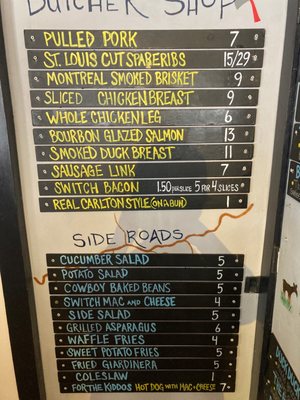 BUTCHER SHOP
PULLED PORK 7
ST. LOUIS CUT SPARERIBS 15/29
MONTREAL SMOKED BRISKET 9
SLICED CHICKEN BREAST 9
WHOLE CHICKEN LEG 6
BOURBON GLAZED SALMON 13
SMOKED DUCK BREAST 11
SAUSAGE LINK 7
SWITCH BACON 1.50 PER SLICE 5 FOR 4 SLICES
REAL CARLTON STYLE (ON A BUN) 1
SIDE ROADS
CUCUMBER SALAD 5
POTATO SALAD 5
COWBOY BAKED BEANS 5
SWITCH MAC AND CHEESE 4
SIDE SALAD 5
GRILLED ASPARAGUS 6
WAFFLE FRIES 4
SWEET POTATO FRIES 5
FRIED GIARDINERA 5
COLESLAW 1
FOR THE KIDDOS HOT DOG WITH MAC & CHEESE 7